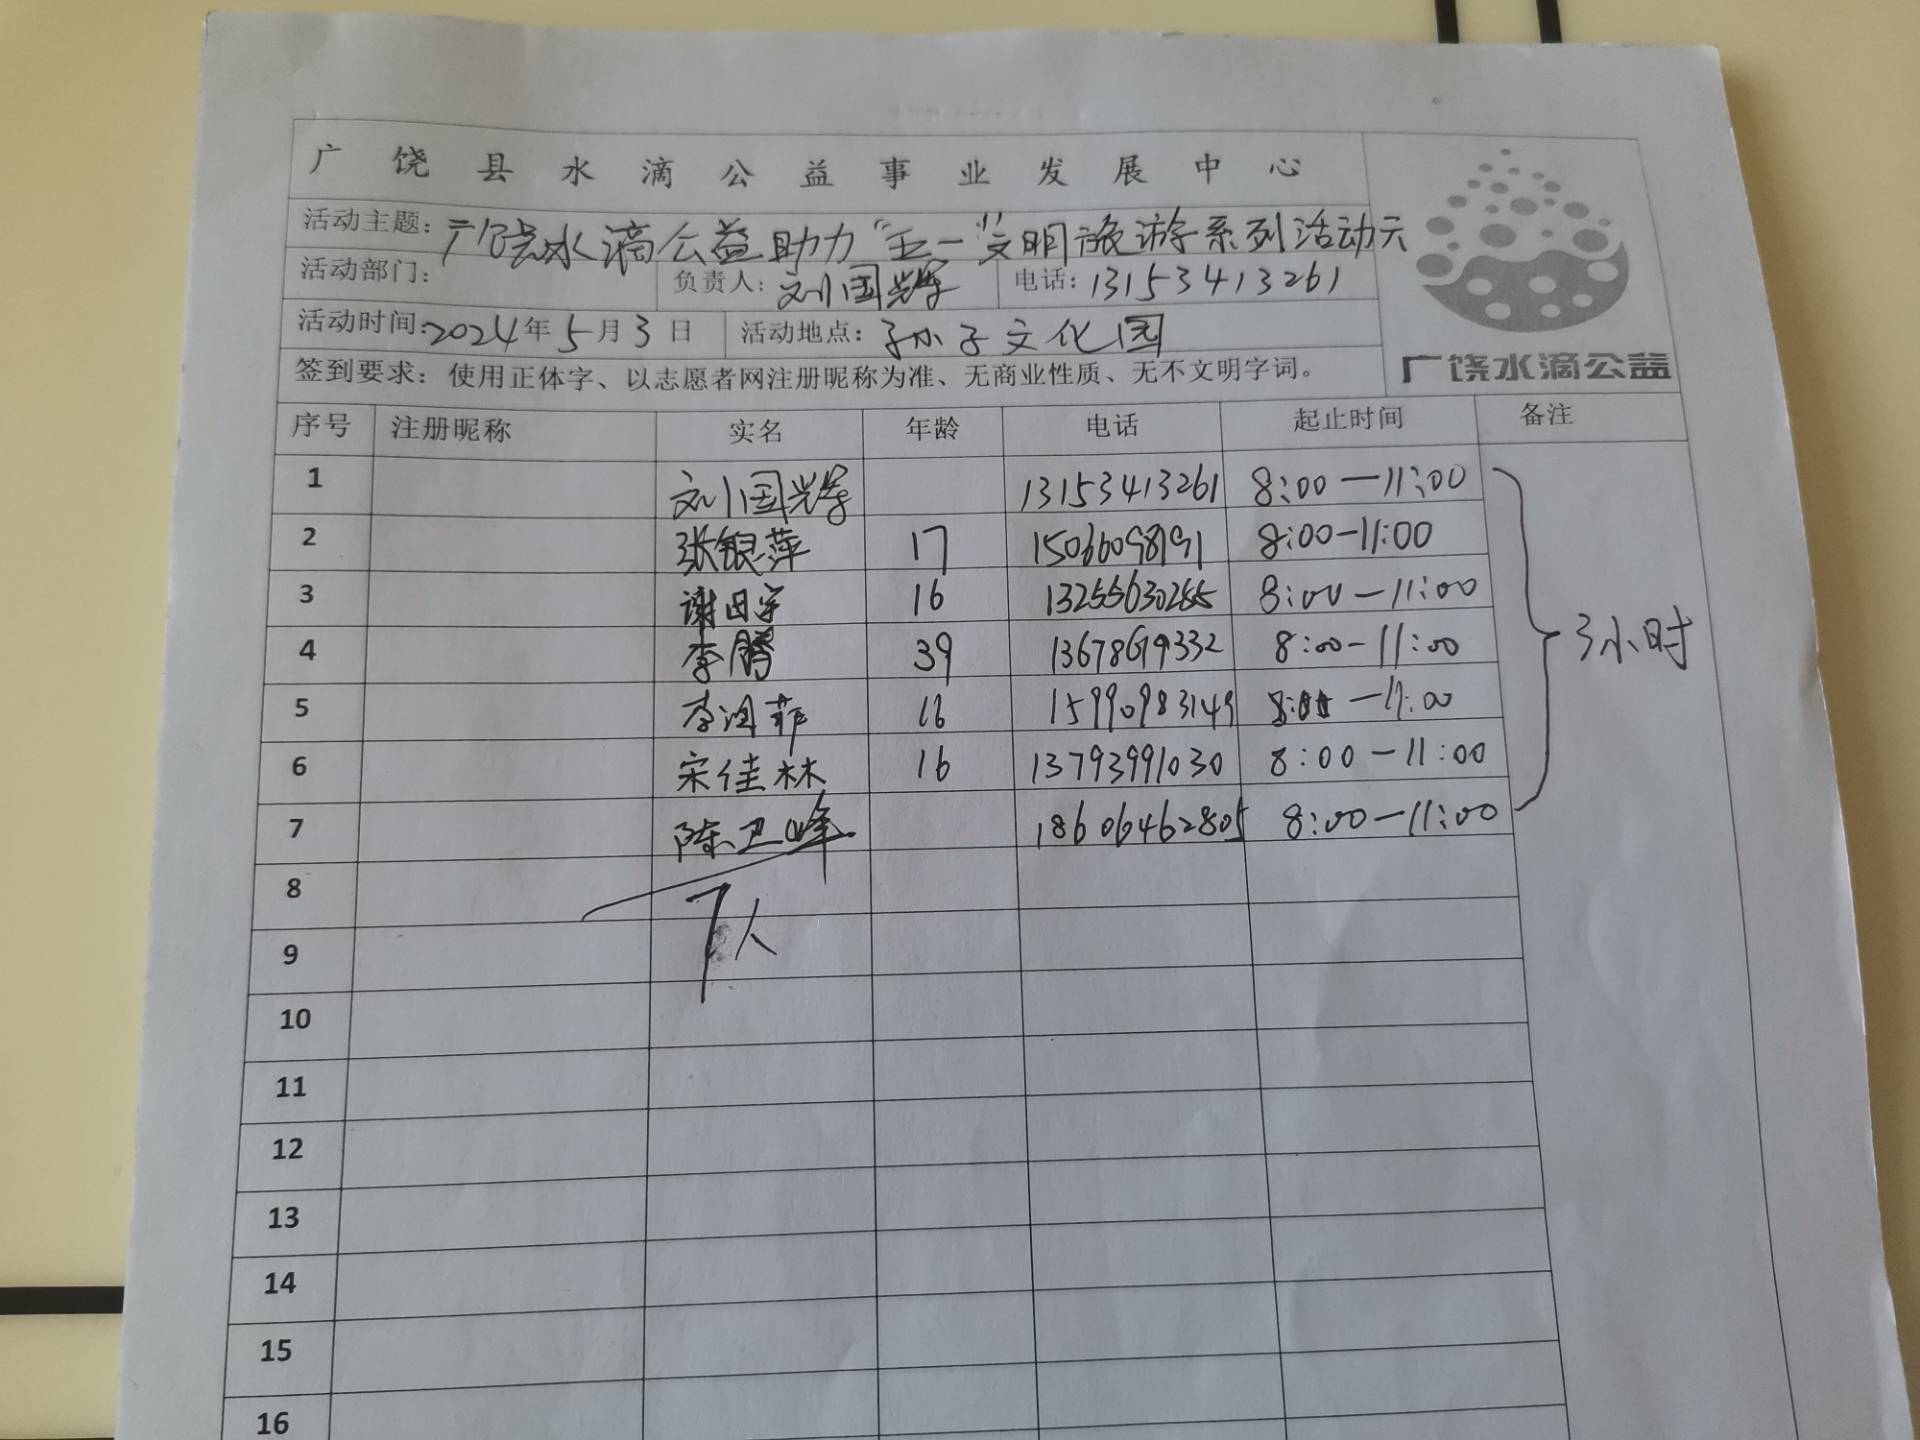 广饶县水滴公益事业发展中心
活动主题：广饶水滴公益助力“五一”文明旅游系列活动云
活动部门： 负责人：刘国辉 电话：13153413261
活动时间：2024年5月3日 活动地点：孙子文化园
签到要求：使用正体字、以志愿者网注册昵称为准、无商业性质、无不文明字词。
广饶水滴公益
序号 注册昵称 实名 年龄 电话 起止时间 备注
1 刘国辉 13153413261 8:00—11:00
2 张银萍 17 15066098191 8:00—11:00
3 16 8:00—11:00
4 李腾 39 8:00—11:00
3小时
5 16 15990983149 8:00—11:00
6 宋佳林 16 13793991030 8:00—11:00
7 陈卫峰 18606462805 8:00—11:00
8
7人
9
10
11
12
13
14
15
16